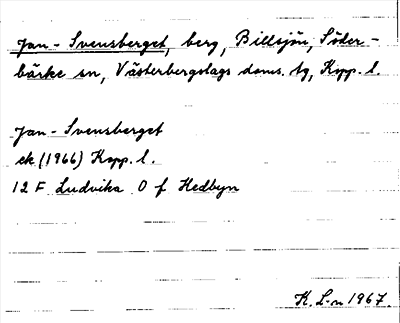 Jan-Svensberget, berg, Billsjön, Söder-
bärke sn, Västerbergslags doms. tg, Kopp. l.
Jan-Svensberget
ek (1966) Kopp. l.
12 F Ludvika O f Hedbyn
K. L-n 1967.